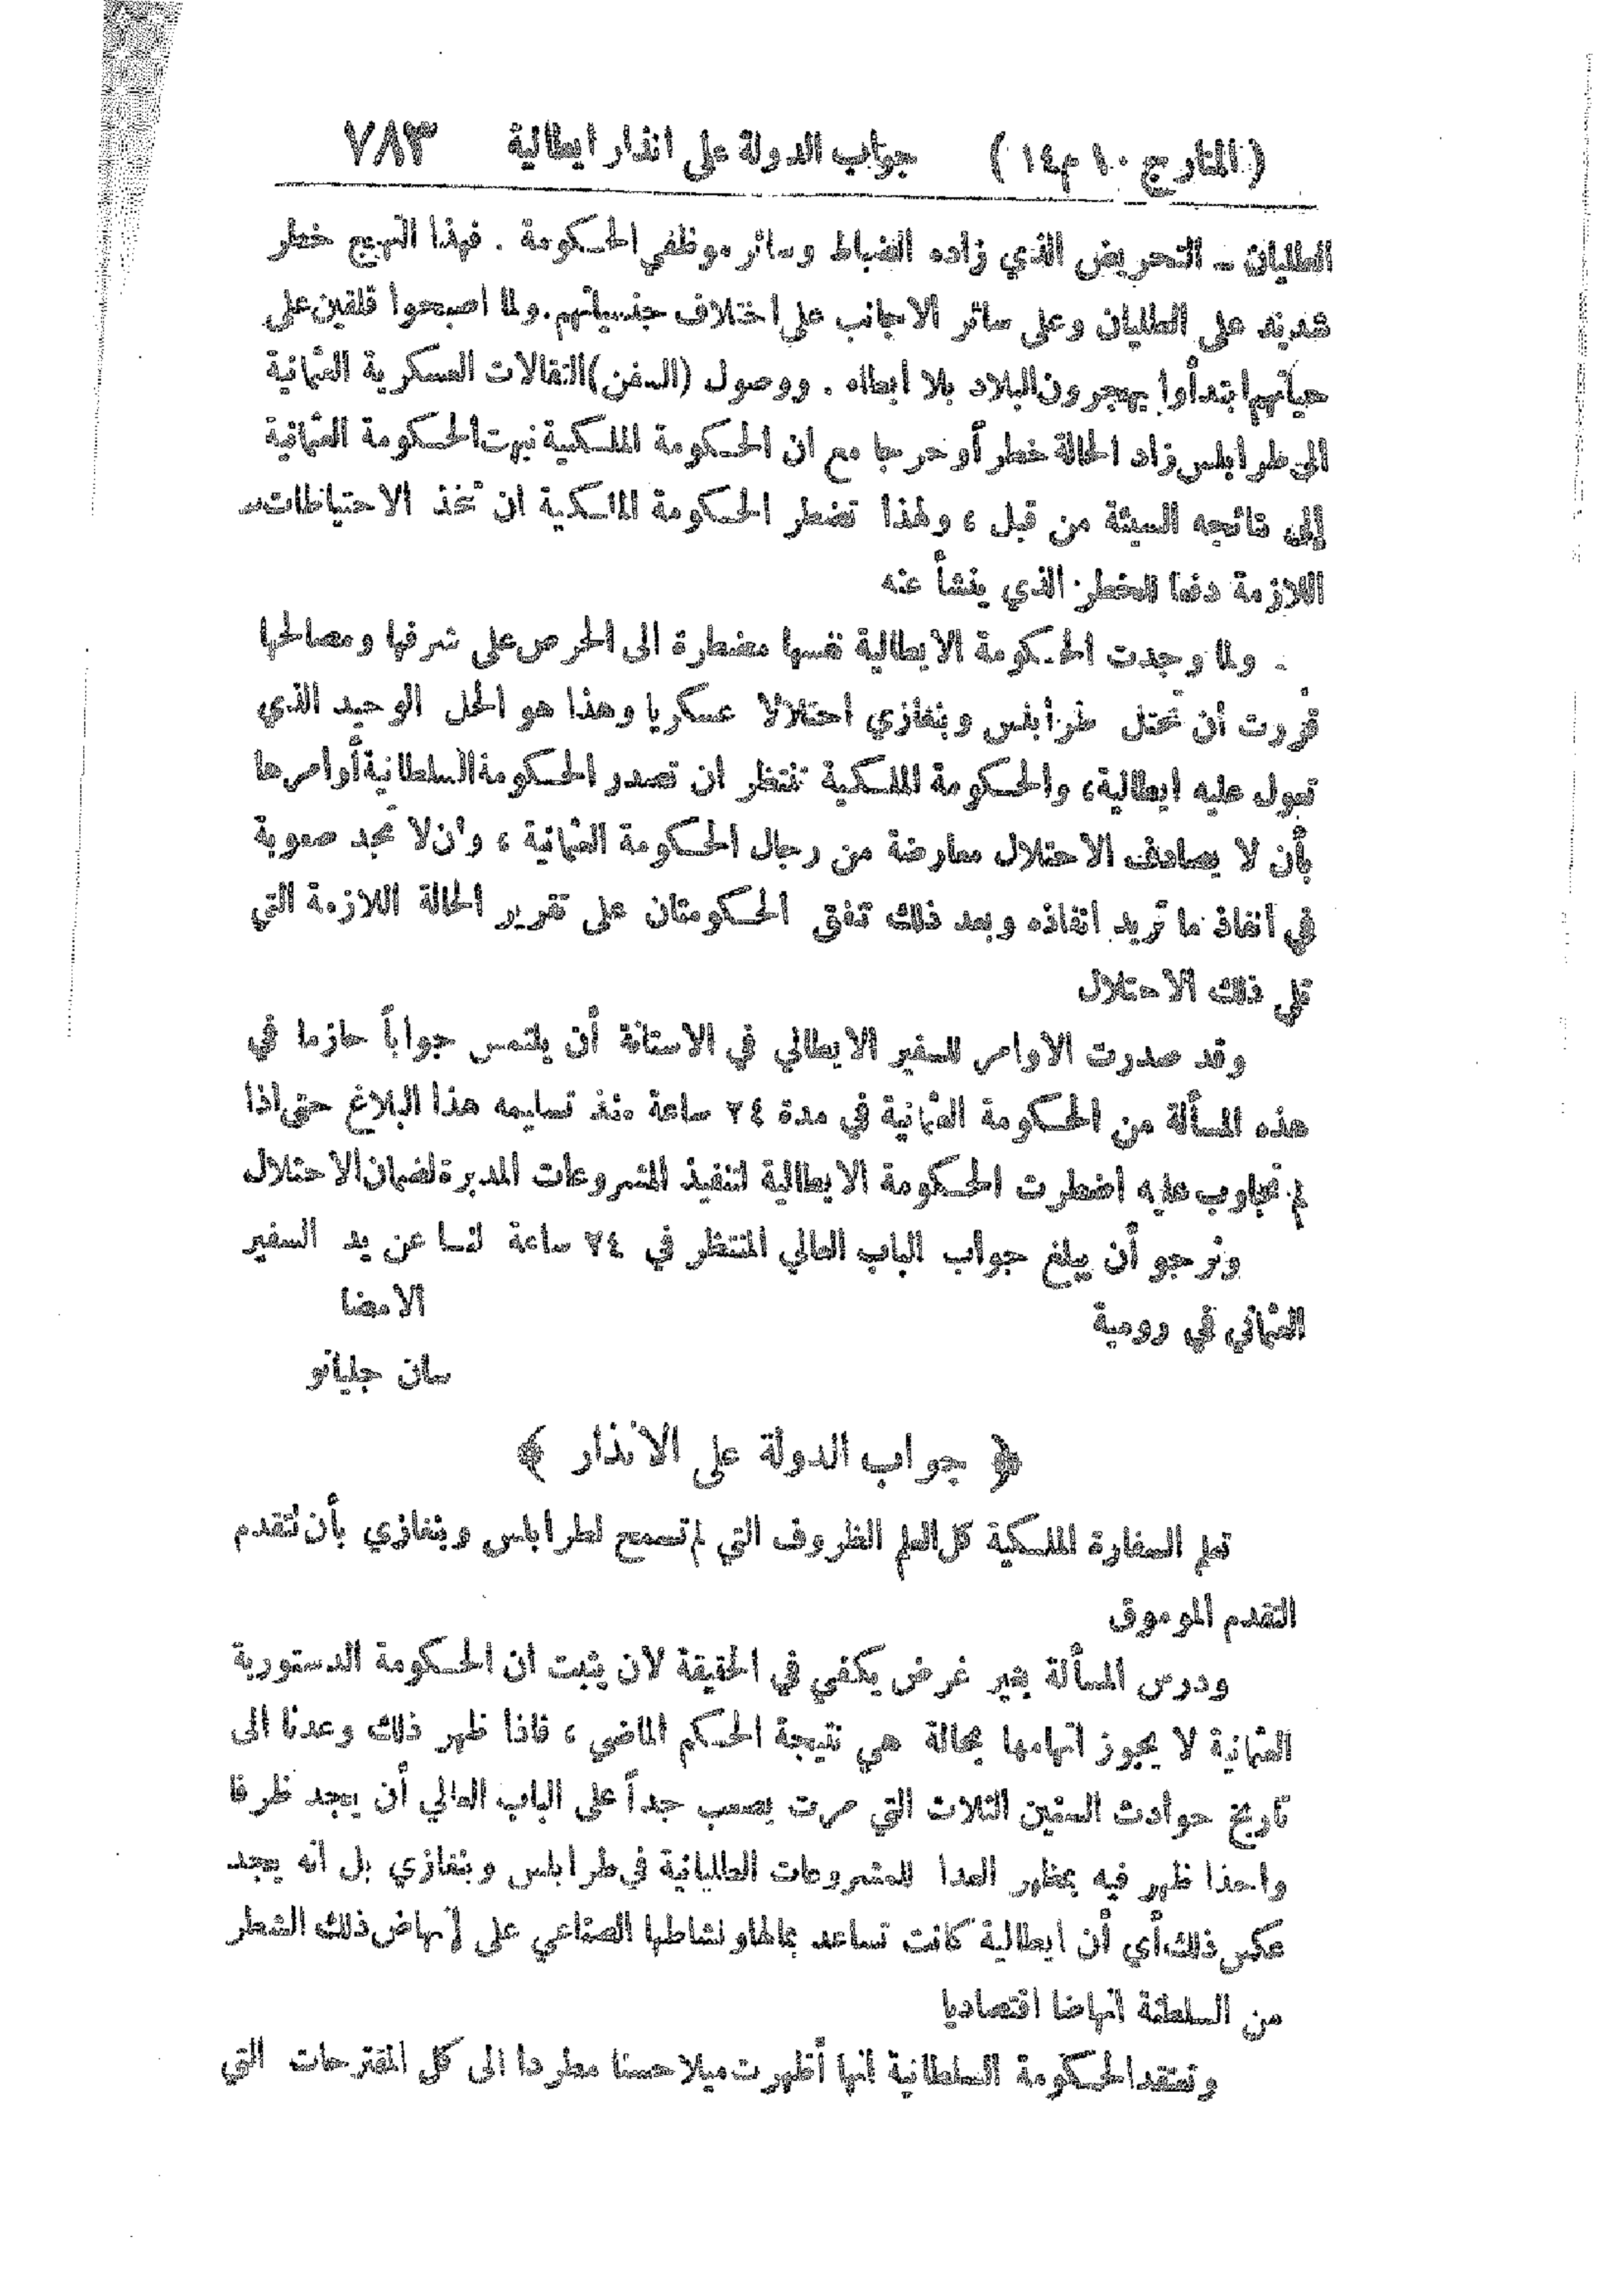 (المنارج ١٠ م١٤) جواب الدولة على انذار ايطالية ٧٨٣
الطليان ـ التحريض الذي زاده الضباط وسائر موظفي الحكومة . فهذا التهيج خطر
شديد على الطليان وعلى سائر الاجانب على اختلاف جنسياتهم. ولما اصبحوا قلقين على
حياتهم ابتدأوا يهجرون البلاد بلا ابطاء . ووصول (السفن) النقالات العسكرية العثمانية
الى طرابلس زاد الحالة خطراً وحرجا مع ان الحكومة الملكية نبهت الحكومة العثمانية
إلى نتائجه السيئة من قبل ، ولهذا تضطر الحكومة الملكية ان تتخذ الاحتياطات
اللازمة دفعا للخطر الذي ينشأ عنه
ولما وجدت الحكومة الايطالية نفسها مضطرة الى الحرص على شرفها ومصالحها
قررت أن تحتل طرابلس وبنغازي احتلالا عسكريا وهذا هو الحل الوحيد الذي
تعول عليه ايطالية، والحكومة الملكية تنتظر ان تصدر الحكومة السلطانية أوامرها
بأن لا يصادف الاحتلال معارضة من رجال الحكومة العثمانية ، وان لا تجد صعوبة
في انفاذ ما تريد انفاذه وبعد ذلك تتفق الحكومتان على تقرير الحالة اللازمة التي
تلي ذلك الاحتلال
وقد صدرت الاوامر للسفير الايطالي في الاستانة أن يلتمس جواباً حازما في
هذه المسألة من الحكومة العثمانية في مدة ٢٤ ساعة منذ تسليمه هذا البلاغ حتى اذا
لم تجاوب عليه اضطرت الحكومة الايطالية لتنفيذ المشروعات المدبرة لضمان الاحتلال
ونرجو أن يبلغ جواب الباب العالي المنتظر في ٢٤ ساعة لنا عن يد السفير
العثماني في رومية الامضا
سان جليانو
﴿ جواب الدولة على الانذار ﴾
تعلم السفارة الملكية كل العلم الظروف التي لم تسمح لطرابلس وبنغازي بأن تتقدم
التقدم الموموق
ودرس المسألة بغير غرض يكفي في الحقيقة لان يثبت ان الحكومة الدستورية
العثمانية لا يجوز اتهامها بحالة هي نتيجة الحكم الماضي ، فاذا ظهر ذلك وعدنا الى
تاريخ حوادث السنين الثلاث التي مرت يصعب جداً على الباب العالي أن يجد ظرفا
واحدا ظهر فيه بمظهر العدا للمشروعات الطليانية في طرابلس وبنغازي بل انه يجد
عكس ذلك أي أن ايطالية كانت تساعد بمالها ونشاطها الصناعي على إنهاض ذلك الشطر
من السلطنة انهاضا اقتصاديا
وتعتقد الحكومة السلطانية انها أظهرت ميلا حسنا مطردا الى كل المقترحات التي